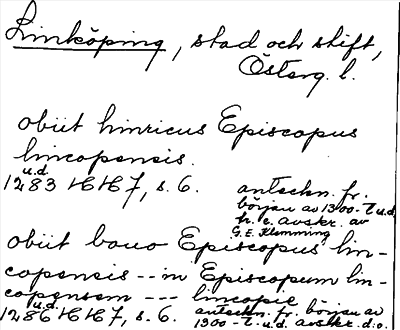 Linköping, stad och stift,
Österg. l.
obiit hinricus Episcopus
lincopensis.
u.d.
1283 HH 7, s. 6.
anteckn. fr.
början av 1300-t u.d.
hr. e. avskr. av
G. E. Klemming
obiit bouo Episcopus lin-
copensis -- in Episcopum lin-
copensem --- lincopie
u.d.
1286 HH 7, s. 6.
anteckn. fr. början av
1300-t. u.d. avskr. d:o.